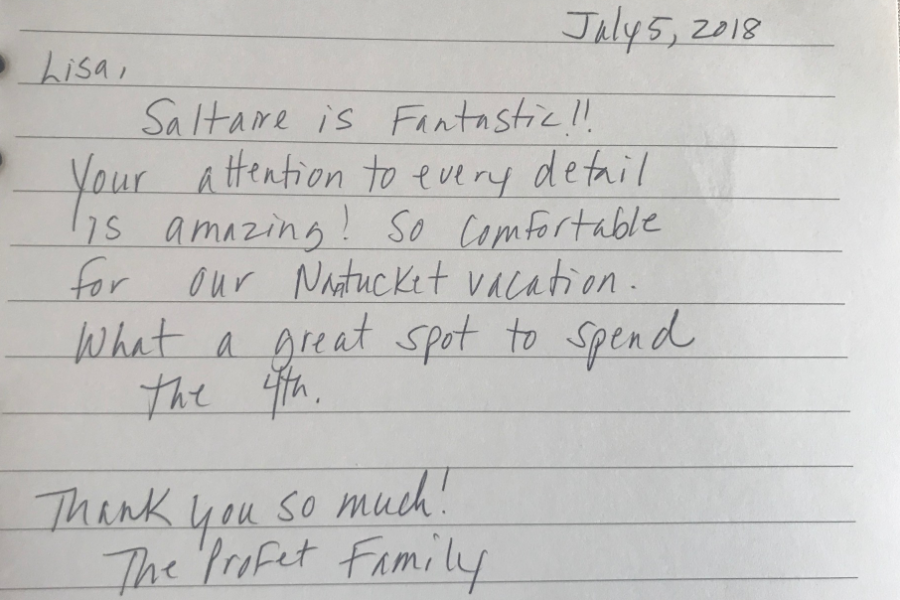 July 5, 2018
Lisa,
Saltaire is Fantastic!!
Your attention to every detail
is amazing! So comfortable
for our Nantucket vacation.
What a great spot to spend
the 4th.
Thank you so much!
The Profet Family